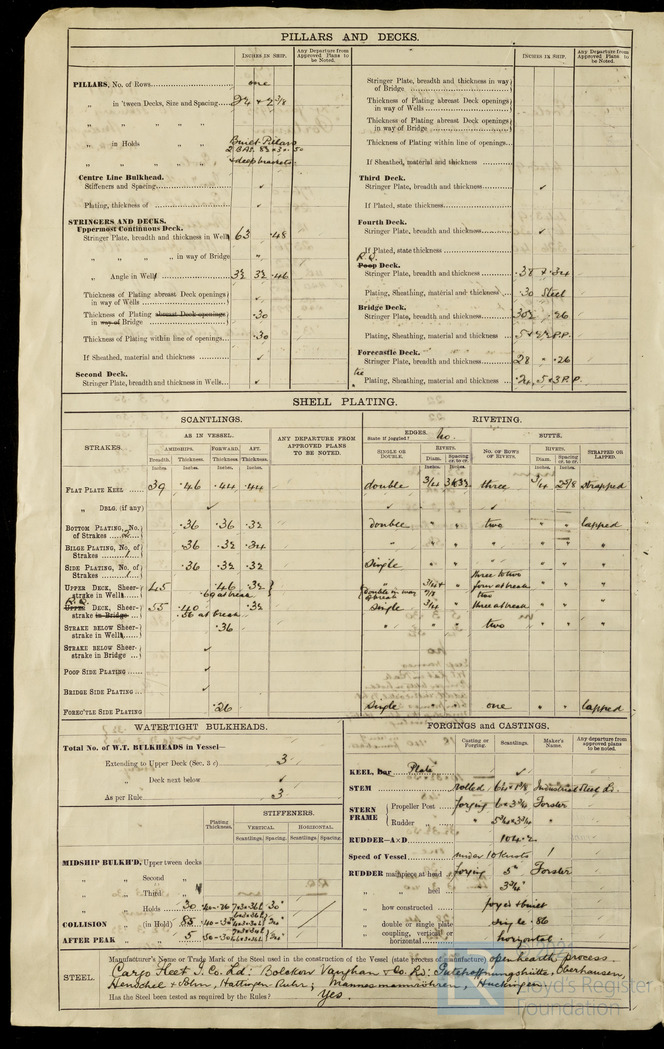 PILLARS AND DECKS.
INCHES IN SHIP.
Any Departure from Approved Plans to be Noted.
PILLARS, No. of Rows one
„ in 'tween Decks, Size and Spacing
„ „ „ „
„ in Holds „ „ Built Pillars
„ „ „ „ & deep brackets
Centre Line Bulkhead.
Stiffeners and Spacing ✓
Plating, thickness of ✓
STRINGERS AND DECKS.
Uppermost Continuous Deck.
Stringer Plate, breadth and thickness in Wells 63 .48
„ „ „ „ in way of Bridge „
„ Angle in Wells 3½ 3½ .46
Thickness of Plating abreast Deck openings in way of Wells ✓
Thickness of Plating abreast Deck openings in way of Bridge .30
Thickness of Plating within line of openings .30
If Sheathed, material and thickness ✓
Second Deck.
Stringer Plate, breadth and thickness in Wells ✓
INCHES IN SHIP.
Any Departure from Approved Plans to be Noted.
Stringer Plate, breadth and thickness in way of Bridge
Thickness of Plating abreast Deck openings in way of Wells
Thickness of Plating abreast Deck openings in way of Bridge
Thickness of Plating within line of openings
If Sheathed, material and thickness
Third Deck.
Stringer Plate, breadth and thickness ✓
If Plated, state thickness
Fourth Deck.
Stringer Plate, breadth and thickness ✓
If Plated, state thickness
R.Q.
Poop Deck.
Stringer Plate, breadth and thickness .38 & .34
Plating, Sheathing, material and thickness .30 Steel
Bridge Deck.
Stringer Plate, breadth and thickness 30½ .26
Plating, Sheathing, material and thickness 5 x 2½ P.P.
Forecastle Deck.
Stringer Plate, breadth and thickness 28 „ .26
Plating, Sheathing, material and thickness 5x3 P.P.
SHELL PLATING.
SCANTLINGS.
RIVETING.
STRAKES.
AS IN VESSEL.
ANY DEPARTURE FROM APPROVED PLANS TO BE NOTED.
EDGES.
State if joggled? No.
BUTTS.
AMIDSHIPS. FORWARD. AFT.
Breadth. Thickness. Thickness. Thickness.
Inches. Inches. Inches. Inches.
SINGLE OR DOUBLE.
RIVETS.
Diam. Spacing cr. to cr.
No. OF ROWS OF RIVETS.
RIVETS.
Diam. Spacing cr. to cr.
STRAPPED OR LAPPED.
FLAT PLATE KEEL 39 .46 .44 .44 double 3/4 three 3/4 2 5/8 strapped
„ DBLG. (if any) ✓
BOTTOM PLATING, No. of Strakes .36 .36 .32 double „ „ two „ „ lapped
BILGE PLATING, No. of Strakes 1 .36 .32 .34 „ „ „ „ „ „ „
SIDE PLATING, No. of Strakes 1 .36 .32 .32 Single
UPPER DECK, Sheerstrake in Wells 45 .46 .32 three to two
R.Q.
UPPER DECK, Sheerstrake in Bridge 55 .40 .32 Single 3/4 three at break „ „ „
.56 at break
STRAKE BELOW Sheerstrake in Wells .36 „ „ „ two „ „ „
STRAKE BELOW Sheerstrake in Bridge ✓
POOP SIDE PLATING ✓
BRIDGE SIDE PLATING ✓
FOREC'TLE SIDE PLATING .26 Single „ „ one „ „ lapped
WATERTIGHT BULKHEADS.
Total No. of W.T. BULKHEADS in Vessel—
Extending to Upper Deck (Sec. 3 c) 3
„ Deck next below ✓
As per Rule 3
Plating Thickness.
STIFFENERS.
VERTICAL. HORIZONTAL.
Scantlings. Spacing. Scantlings. Spacing.
MIDSHIP BULKH'D, Upper tween decks
„ „ Second „
„ „ Third „
„ „ Holds 30 30"
COLLISION „ (in Hold)
AFTER PEAK „ „ 5
FORGINGS and CASTINGS.
Casting or Forging. Scantlings. Maker's Name. Any departure from approved plans to be noted.
KEEL, Bar Plate ✓
STEM rolled Industrial Steel Ld.
STERN FRAME Propeller Post forging 6 x 3¾ Forster
Rudder „ „ 5¾ x 3¾ „
RUDDER—A×D
Speed of Vessel under 10 knots
RUDDER mainpiece at head forging 5" Forster
„ „ heel 3¾"
„ how constructed forged & built
„ double or single plate single .86
„ coupling, vertical or horizontal horizontal
STEEL.
Manufacturer's Name or Trade Mark of the Steel used in the construction of the Vessel (state process of manufacture) open hearth process.
Cargo Fleet I. Co. Ld: Bolckow Vaughan & Co. Ld: Gutehoffnungshütte, Oberhausen,
Henschel & Sohn, Hattingen-Ruhr; Mannesmannröhren, Huckingen
Has the Steel been tested as required by the Rules? Yes.
Lloyd's Register
Foundation